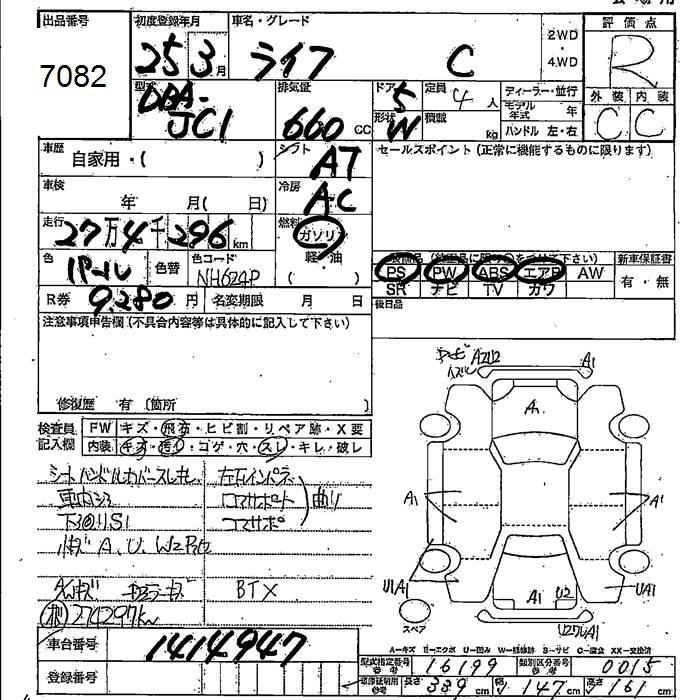 出品番号
7082
初度登録年月
25 3 月
車名・グレード
ライフ C
2WD
・
4WD
評価点
R
外装 内装
C C
型式
DBA-
JC1
排気量
660 CC
ドア 5
形状 W
定員 4 人
積載 kg
ディーラー・並行
モデル年式 年
ハンドル 左・右
車歴
自家用・( )
シフト
AT
セールスポイント(正常に機能するものに限ります)
車検
年 月( 日)
冷房
AC
走行
27万4千296 km
燃料
ガソリン
軽・油
( )
色
パール
色替
色コード
NH624P
PS PW ABS エアB AW
SR ナビ TV カワ
新車保証書
有・無
R券 9,280 円
名変期限 月 日
後日品
注意事項申告欄(不具合内容等は具体的に記入して下さい)
修復歴 有(箇所 )
検査員
記入欄
FW キズ・飛石・ヒビ割・リペア跡・X要
内装 キズ・汚れ・コゲ・穴・スレ・キレ・破レ
シートハンドルカバースレキレ
A、U、W2
BTX
274297km
A1
A1
A1
A1
A1 U2
U1A1
UA1
スペア
車台番号
1414947
登録番号
A-キズ E-エクボ U-凹み W-補修跡 S-サビ C-腐食 XX-交換済
型式指定番号
参考
16199
類別区分番号
参考
0015
車庫証明用
参考
長さ 339 幅 147 高さ 161